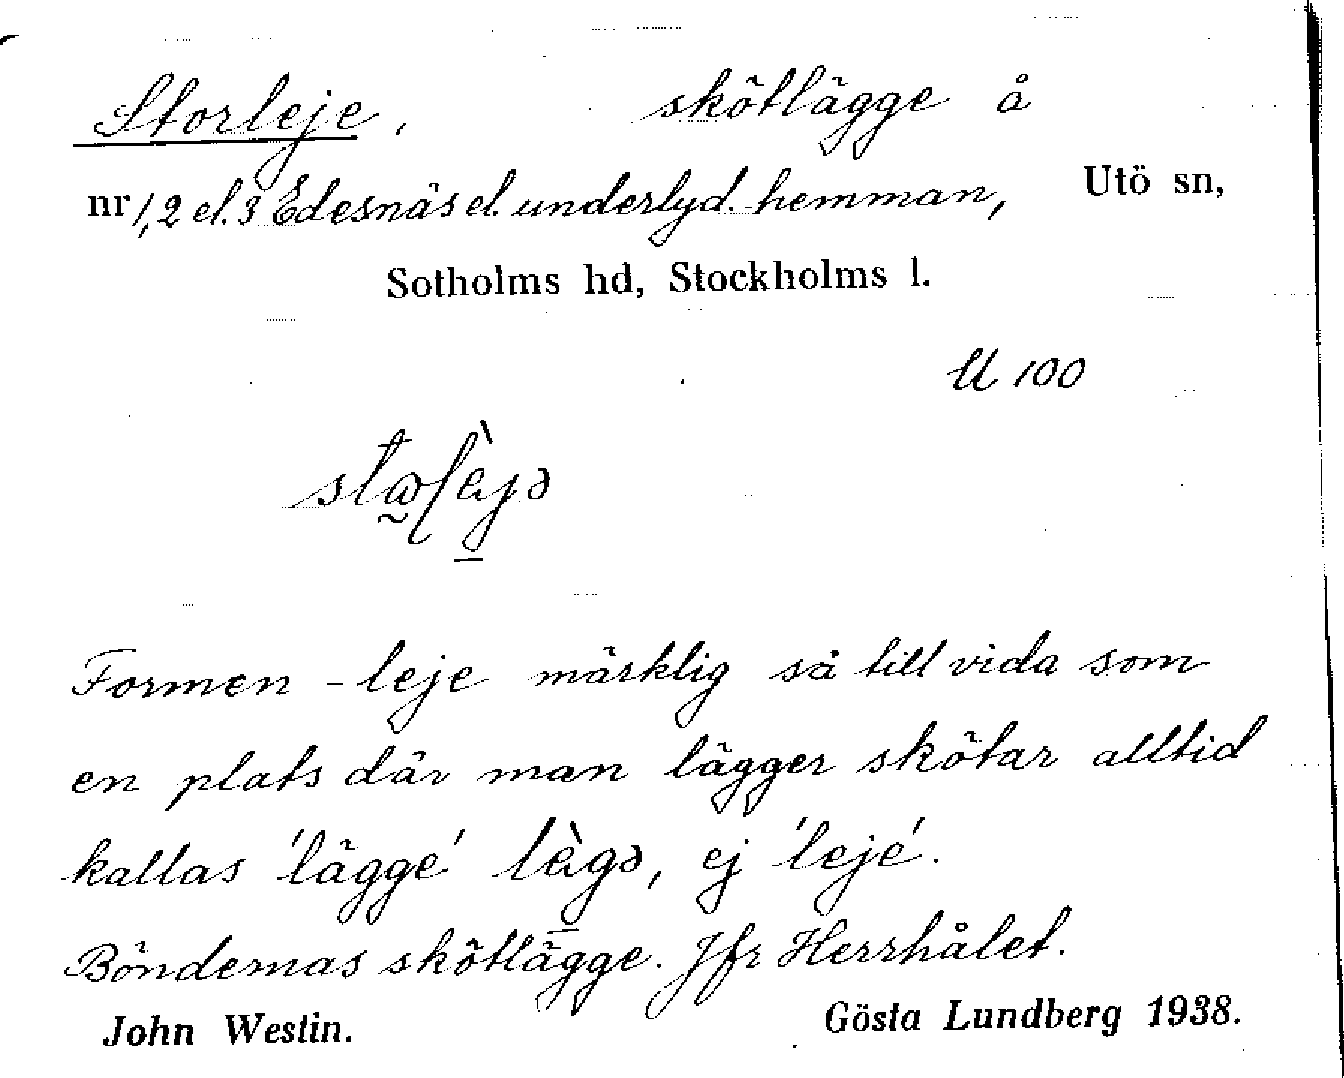 Storleje, skötlägge å
nr 1, 2 el. 3 Edesnäs el. underlyd. hemman, Utö sn,
Sotholms hd, Stockholms l.
U 100
Formen -leje märklig så till vida som
en plats där man lägger skötar alltid
kallas 'lägge' lὲgə, ej 'leje'.
Böndernas skötlägge. Jfr Herrhålet.
John Westin. Gösta Lundberg 1938.